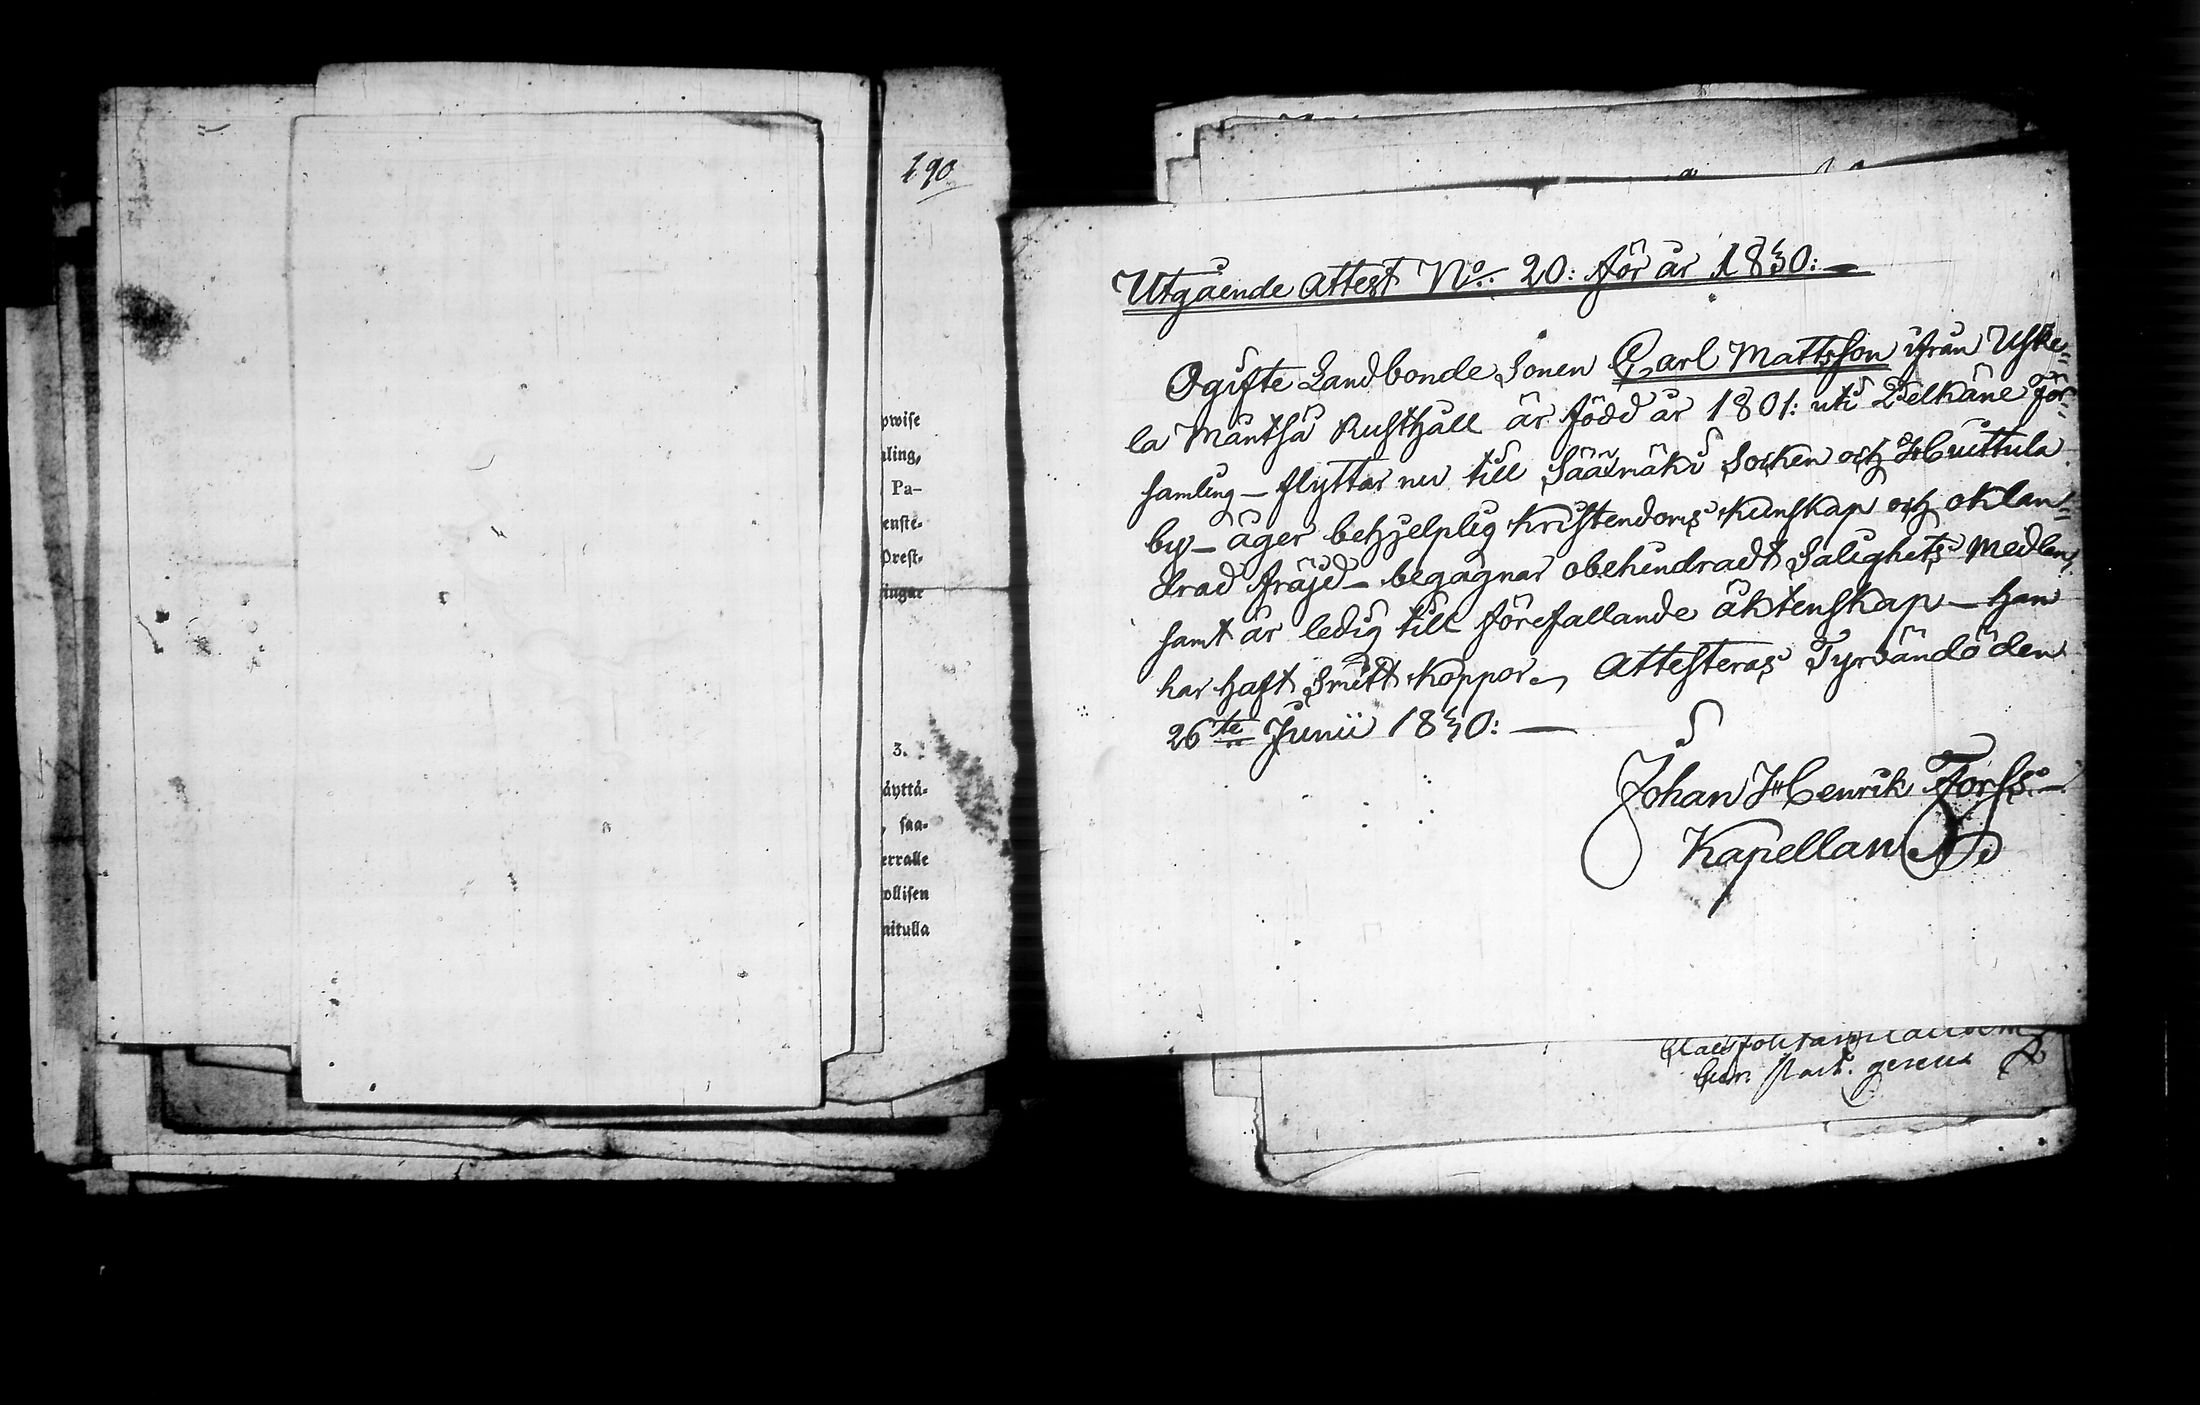 190
pwise
ling,
Pa-
enste-
Orest-
ingar
3.
äyttä-
, saa-
erralle
ollisen
nitulla
Utgående Attest No. 20: för år 1830:—
Ogifte Landbonde Sonen Carl Mattsson ifrån Uske-
la Mäntsä Rusthåll är född år 1801: uti Pelkäne För-
samling — flyttar nu till Säärmäki Socken och Huittula
by — äger behjelplig Kristendoms Kunskap och oklan-
drad fräjd — begagnar obehindradt Salighets Medlen,
samt är ledig till förefallande äktenskap — Han
har haft Smitt Koppor. Attesteras Tyrvändö den
26te Junii 1830:—
Johan Henrik Forss.—
Kapellan
gerens